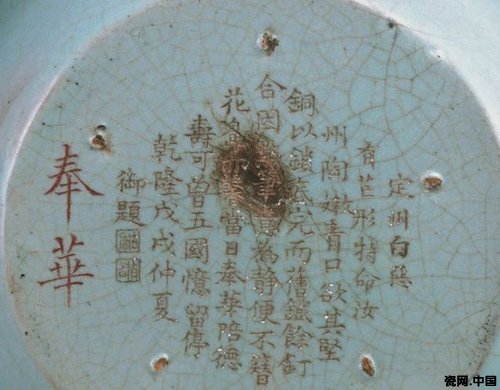 定州白惡
有芒形特命汝
州陶嫩青口欲其堅
銅以鎖底完而舊鐵餘釘
合因筆為靜便不簪
花當日奉華陪德
壽可曾五國憶留停
乾隆戊戌仲夏
御題
奉華
瓷网.中国